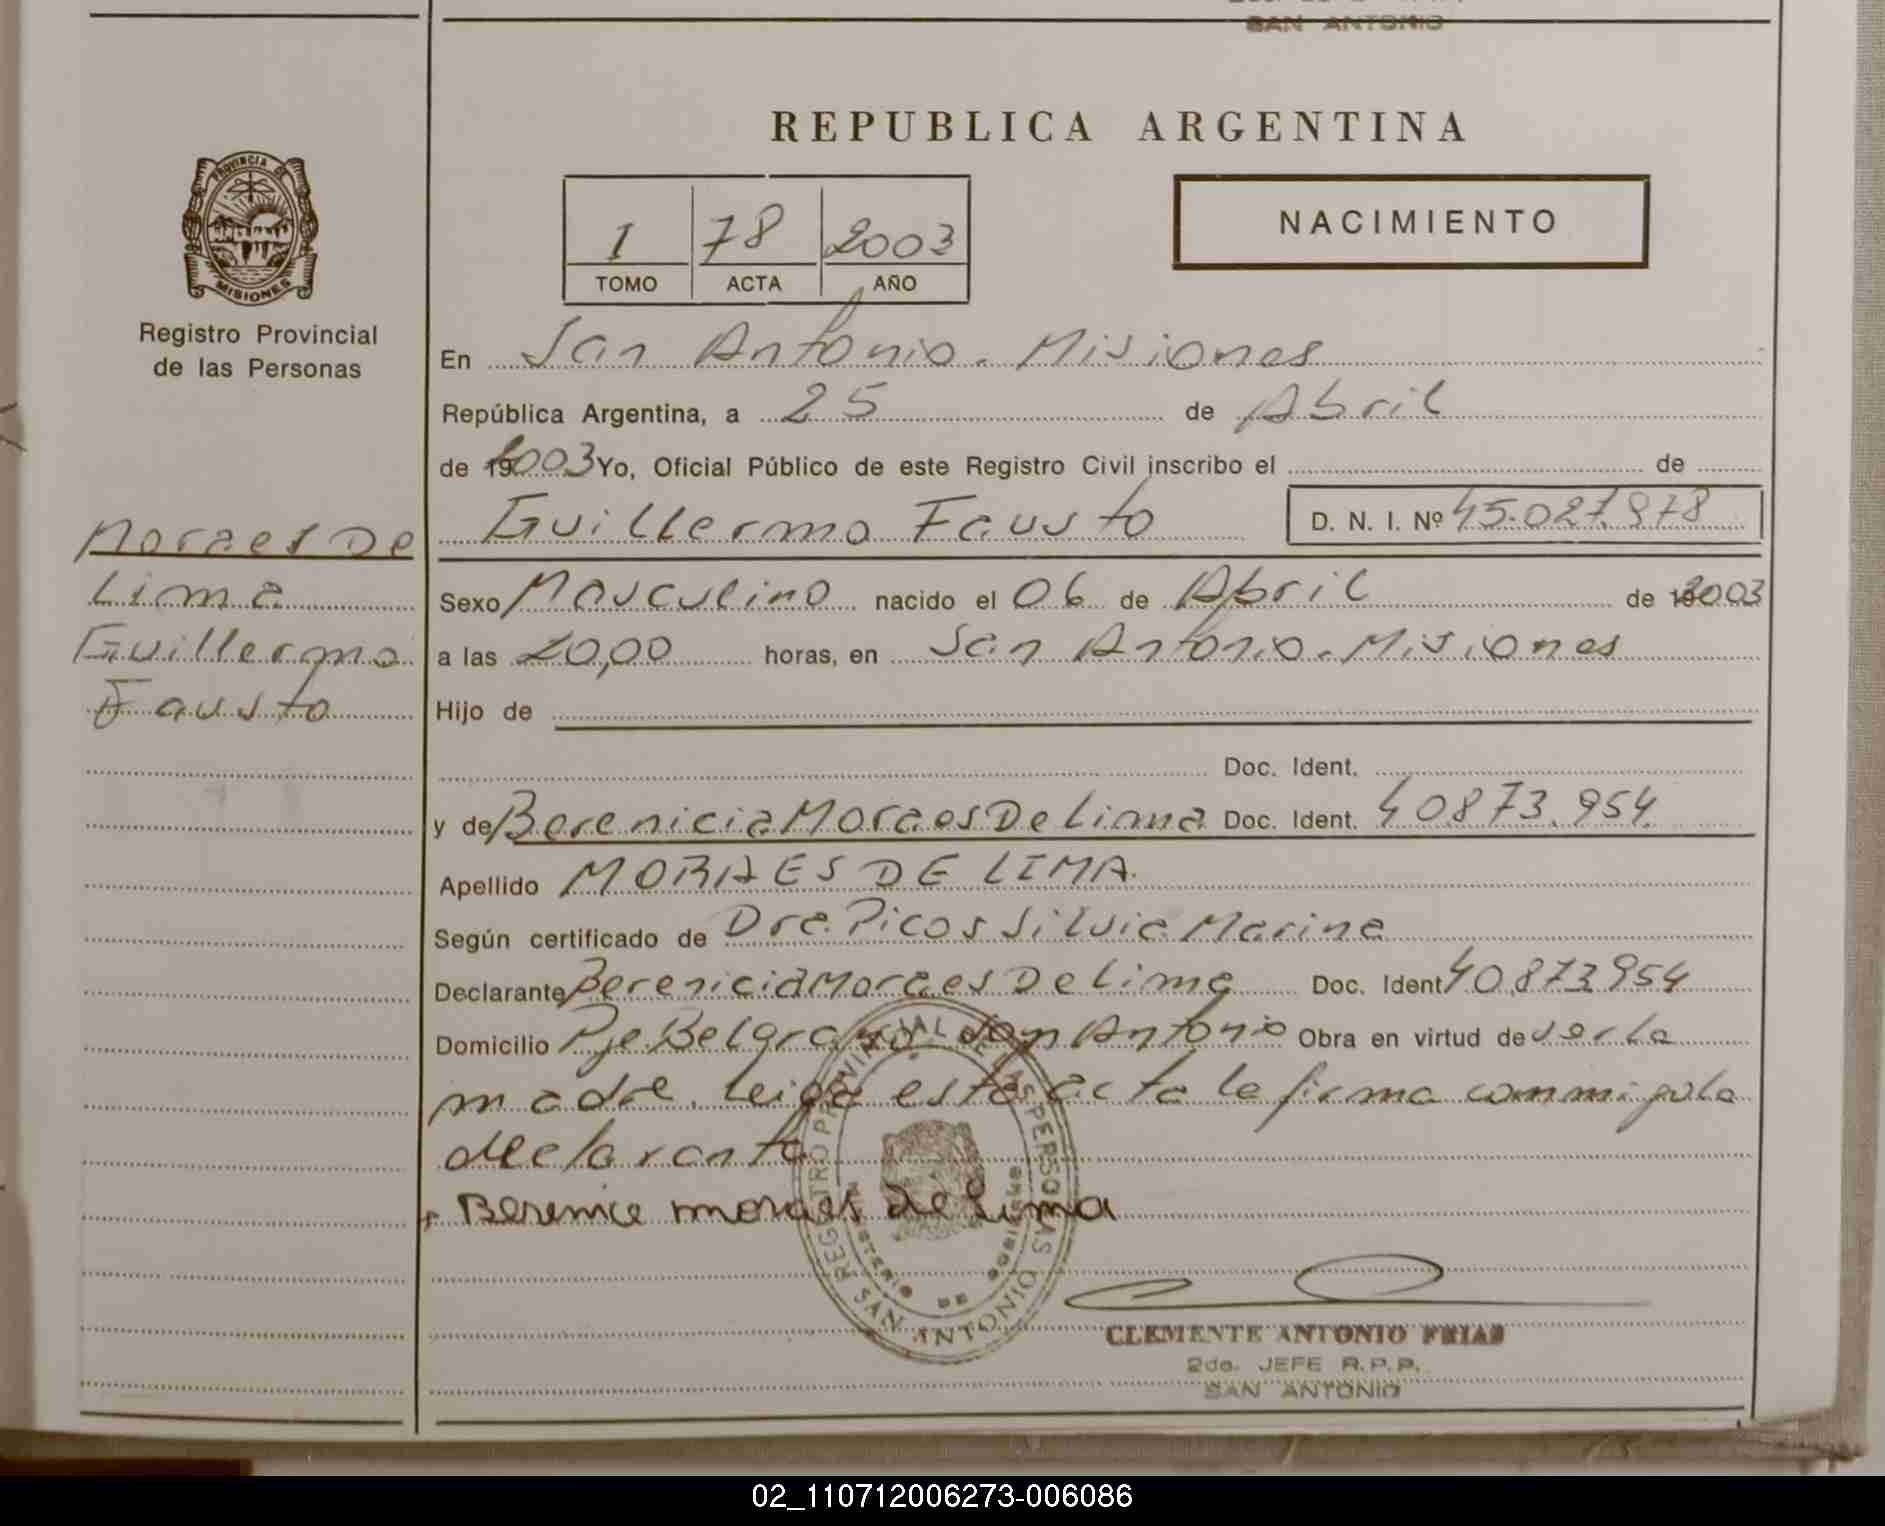 SAN ANTONIO
REPUBLICA ARGENTINA
PROVINCIA DE
MISIONES
Registro Provincial
de las Personas
1 78 2003
TOMO ACTA AÑO
NACIMIENTO
En San Antonio. Misiones
República Argentina, a 25 de Abril
de 2003 Yo, Oficial Público de este Registro Civil inscribo el de
Guillermo Fausto D. N. I. Nº 45.027.978
Moraes De
Lima
Guillermo
Fausto
Sexo Masculino nacido el 06 de Abril de 2003
a las 20,00 horas, en San Antonio. Misiones
Hijo de
Doc. Ident.
y de Berenicia Moraes De Lima Doc. Ident. 40873.954
Apellido MORAES DE LIMA.
Según certificado de Dra. Picos Silvia Marina
Declarante Berenicia Moraes De Lima Doc. Ident 40.873.954
Domicilio Pje. Belgrano San Antonio Obra en virtud de ser la
madre. Leida esta acta la firma conmigo la
declarante
Berenice moraes de Lima
REGISTRO PROVINCIAL DE LAS PERSONAS
MINISTERIO DE GOBIERNO
SAN ANTONIO
CLEMENTE ANTONIO FRIAS
2do. JEFE R.P.P.
SAN ANTONIO
02_110712006273-006086